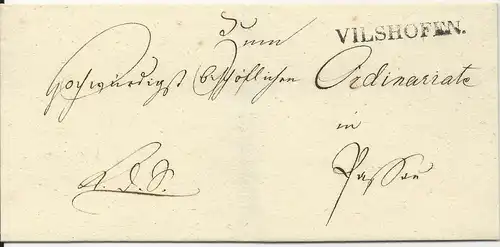 Zum
VILSHOFEN.
Hochwürdigst Bischöflichen Ordinariate
in
Passau
R. D. S.